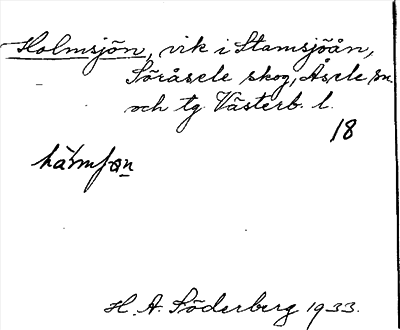 Holmsjön, vik i Stamsjöån,
Söråsele skog, Åsele sn
och tg Västerb. l.
18
H. A. Söderberg 1933.